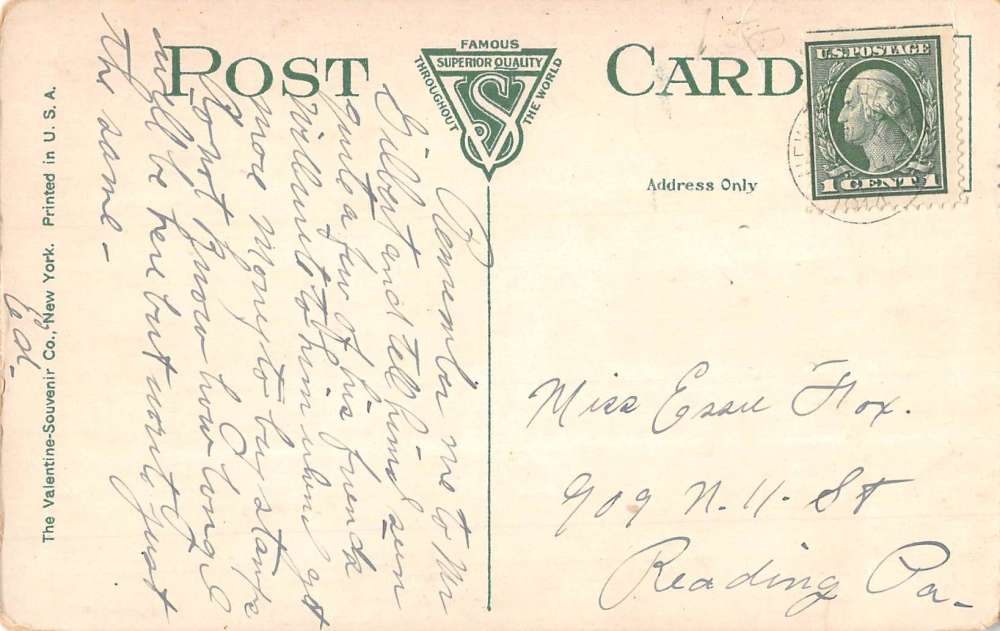 POST CARD
FAMOUS
SUPERIOR QUALITY
THROUGHOUT THE WORLD
VS
U.S. POSTAGE
1 CENT 1
Address Only
Remember me to Mr
Gilbert and tell him I seen
quite a few of his friends
will write to him when I get
more Money to buy stamps
Do not know how long I
will be here but write just
the same -
Ed -
Miss Essie Fox.
909 N. 11. St
Reading Pa -
The Valentine-Souvenir Co., New York. Printed in U. S. A.